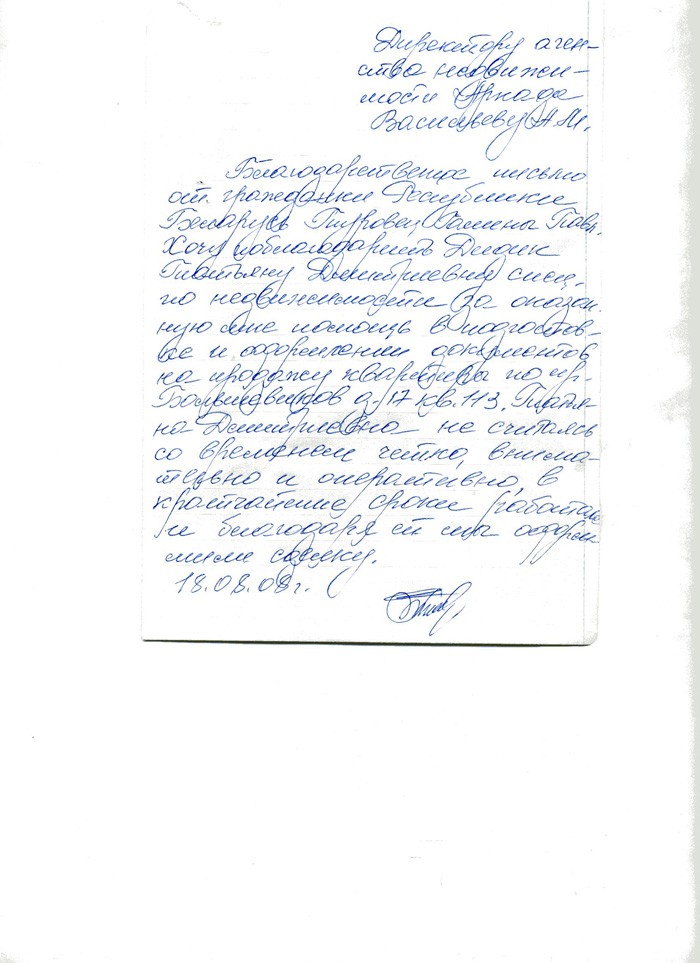 Директору аген-
ства недвижи-
мости Аркада
Васильеву А.М.
Благодарственное письмо
от гражданки Республики
Беларусь Галины Павл.
Хочу поблагодарить Дидик
Татьяну Дмитриевну спец.
по недвижимости за оказан-
ную мне помощь в подготов-
ке и оформлении документов
на продажу квартиры по пр.
Большевиков д. 17 кв. 113. Татья-
на Дмитриевна не считаясь
со временем четко, внима-
тельно и оперативно, в
кратчайшие сроки работала
и благодаря ей мы оформ
мили сделку.
18.08.08г.